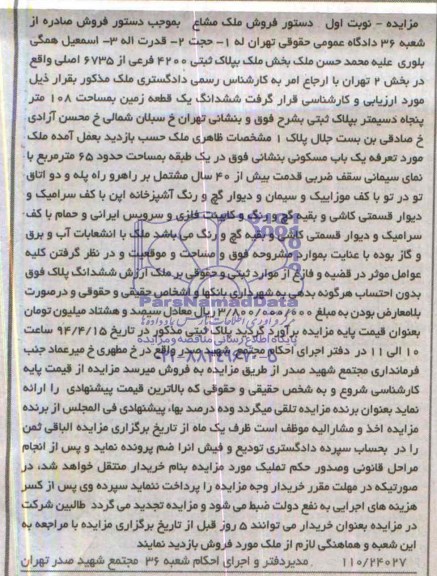 مزایده - نوبت اول   دستور فروش ملک مشاع   بموجب دستور فروش صادره از
شعبه ۳۶ دادگاه عمومی حقوقی تهران له ۱- حجت ۲- قدرت اله ۳- اسمعیل همگی
بلوری علیه محمد حسن ملک بخش ملک بپلاک ثبتی ۴۲۰۰ فرعی از ۶۷۳۵ اصلی واقع
در بخش ۲ تهران با ارجاع امر به کارشناس رسمی دادگستری ملک مذکور بقرار ذیل
مورد ارزیابی و کارشناسی قرار گرفت ششدانگ یک قطعه زمین بمساحت ۱۰۸ متر
پنجاه دسیمتر بپلاک ثبتی بشرح فوق و بنشانی تهران خ سبلان شمالی خ محسن آزادی
خ صادقی بن بست جلال پلاک ۱ مشخصات ظاهری ملک حسب بازدید بعمل آمده ملک
مورد تعرفه یک باب مسکونی بنشانی فوق در یک طبقه بمساحت حدود ۶۵ مترمربع با
نمای سیمانی سقف ضربی قدمت بیش از ۴۰ سال مشتمل بر راهرو راه پله و دو اتاق
تو در تو با کف موزاییک و سیمان و دیوار گچ و رنگ آشپزخانه اپن با کف سرامیک و
دیوار قسمتی کاشی و بقیه گچ و رنگ و کابینت فلزی و سرویس ایرانی و حمام با کف
سرامیک و دیوار قسمتی کاشی و بقیه گچ و رنگ می باشد ملک با انشعابات آب و برق
و گاز بوده با عنایت بموارد مشروحه فوق و مساحت و موقعیت و در نظر گرفتن کلیه
عوامل موثر در قضیه و فارغ از موارد ثبتی و حقوقی بر ملک ارزش ششدانگ پلاک فوق
بدون احتساب هرگونه بدهی به شهرداری بانکها و اشخاص حقیقی و حقوقی و درصورت
بلامعارض بودن به مبلغ ۳/۸۰۰/۰۰۰/۰۰۰ ریال معادل سیصد و هشتاد میلیون تومان
بعنوان قیمت پایه مزایده برآورد گردید پلاک ثبتی مذکور در تاریخ ۹۴/۴/۱۵ ساعت
۱۰ الی ۱۱ در دفتر اجرای احکام مجتمع شهید صدر واقع در خ مطهری خ میرعماد جنب
فرمانداری مجتمع شهید صدر از طریق مزایده به فروش میرسد مزایده از قیمت پایه
کارشناسی شروع و به شخص حقیقی و حقوقی که بالاترین قیمت پیشنهادی را ارائه
نماید بعنوان برنده مزایده تلقی میگردد وده درصد بهاء پیشنهادی فی المجلس از برنده
مزایده اخذ و مشارالیه موظف است ظرف یک ماه از تاریخ برگزاری مزایده الباقی ثمن
را در بحساب سپرده دادگستری تودیع و فیش انرا ضم پرونده نماید و پس از انجام
مراحل قانونی وصدور حکم تملیک مورد مزایده بنام خریدار منتقل خواهد شد، در
صورتیکه در مهلت مقرر خریدار وجه مزایده را پرداخت ننماید سپرده وی پس از کسر
هزینه های اجرایی به نفع دولت ضبط می شود و مزایده تجدید می گردد طالبین شرکت
در مزایده بعنوان خریدار می توانند ۵ روز قبل از تاریخ برگزاری مزایده با مراجعه به
این شعبه و هماهنگی لازم از ملک مورد فروش بازدید نمایند
۱۱۰/۲۴۰۲۷   مدیردفتر و اجرای احکام شعبه ۳۶ مجتمع شهید صدر تهران
ParsNamadData
پایگاه اطلاع رسانی مناقصه و مزایده